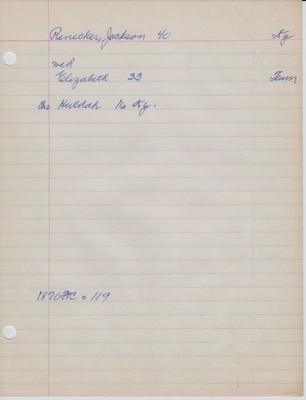 Renicker, Jackson 40 Ky
md
Elizabeth 33 Tenn
chs Huldah 16 Ky.
1870 = 119